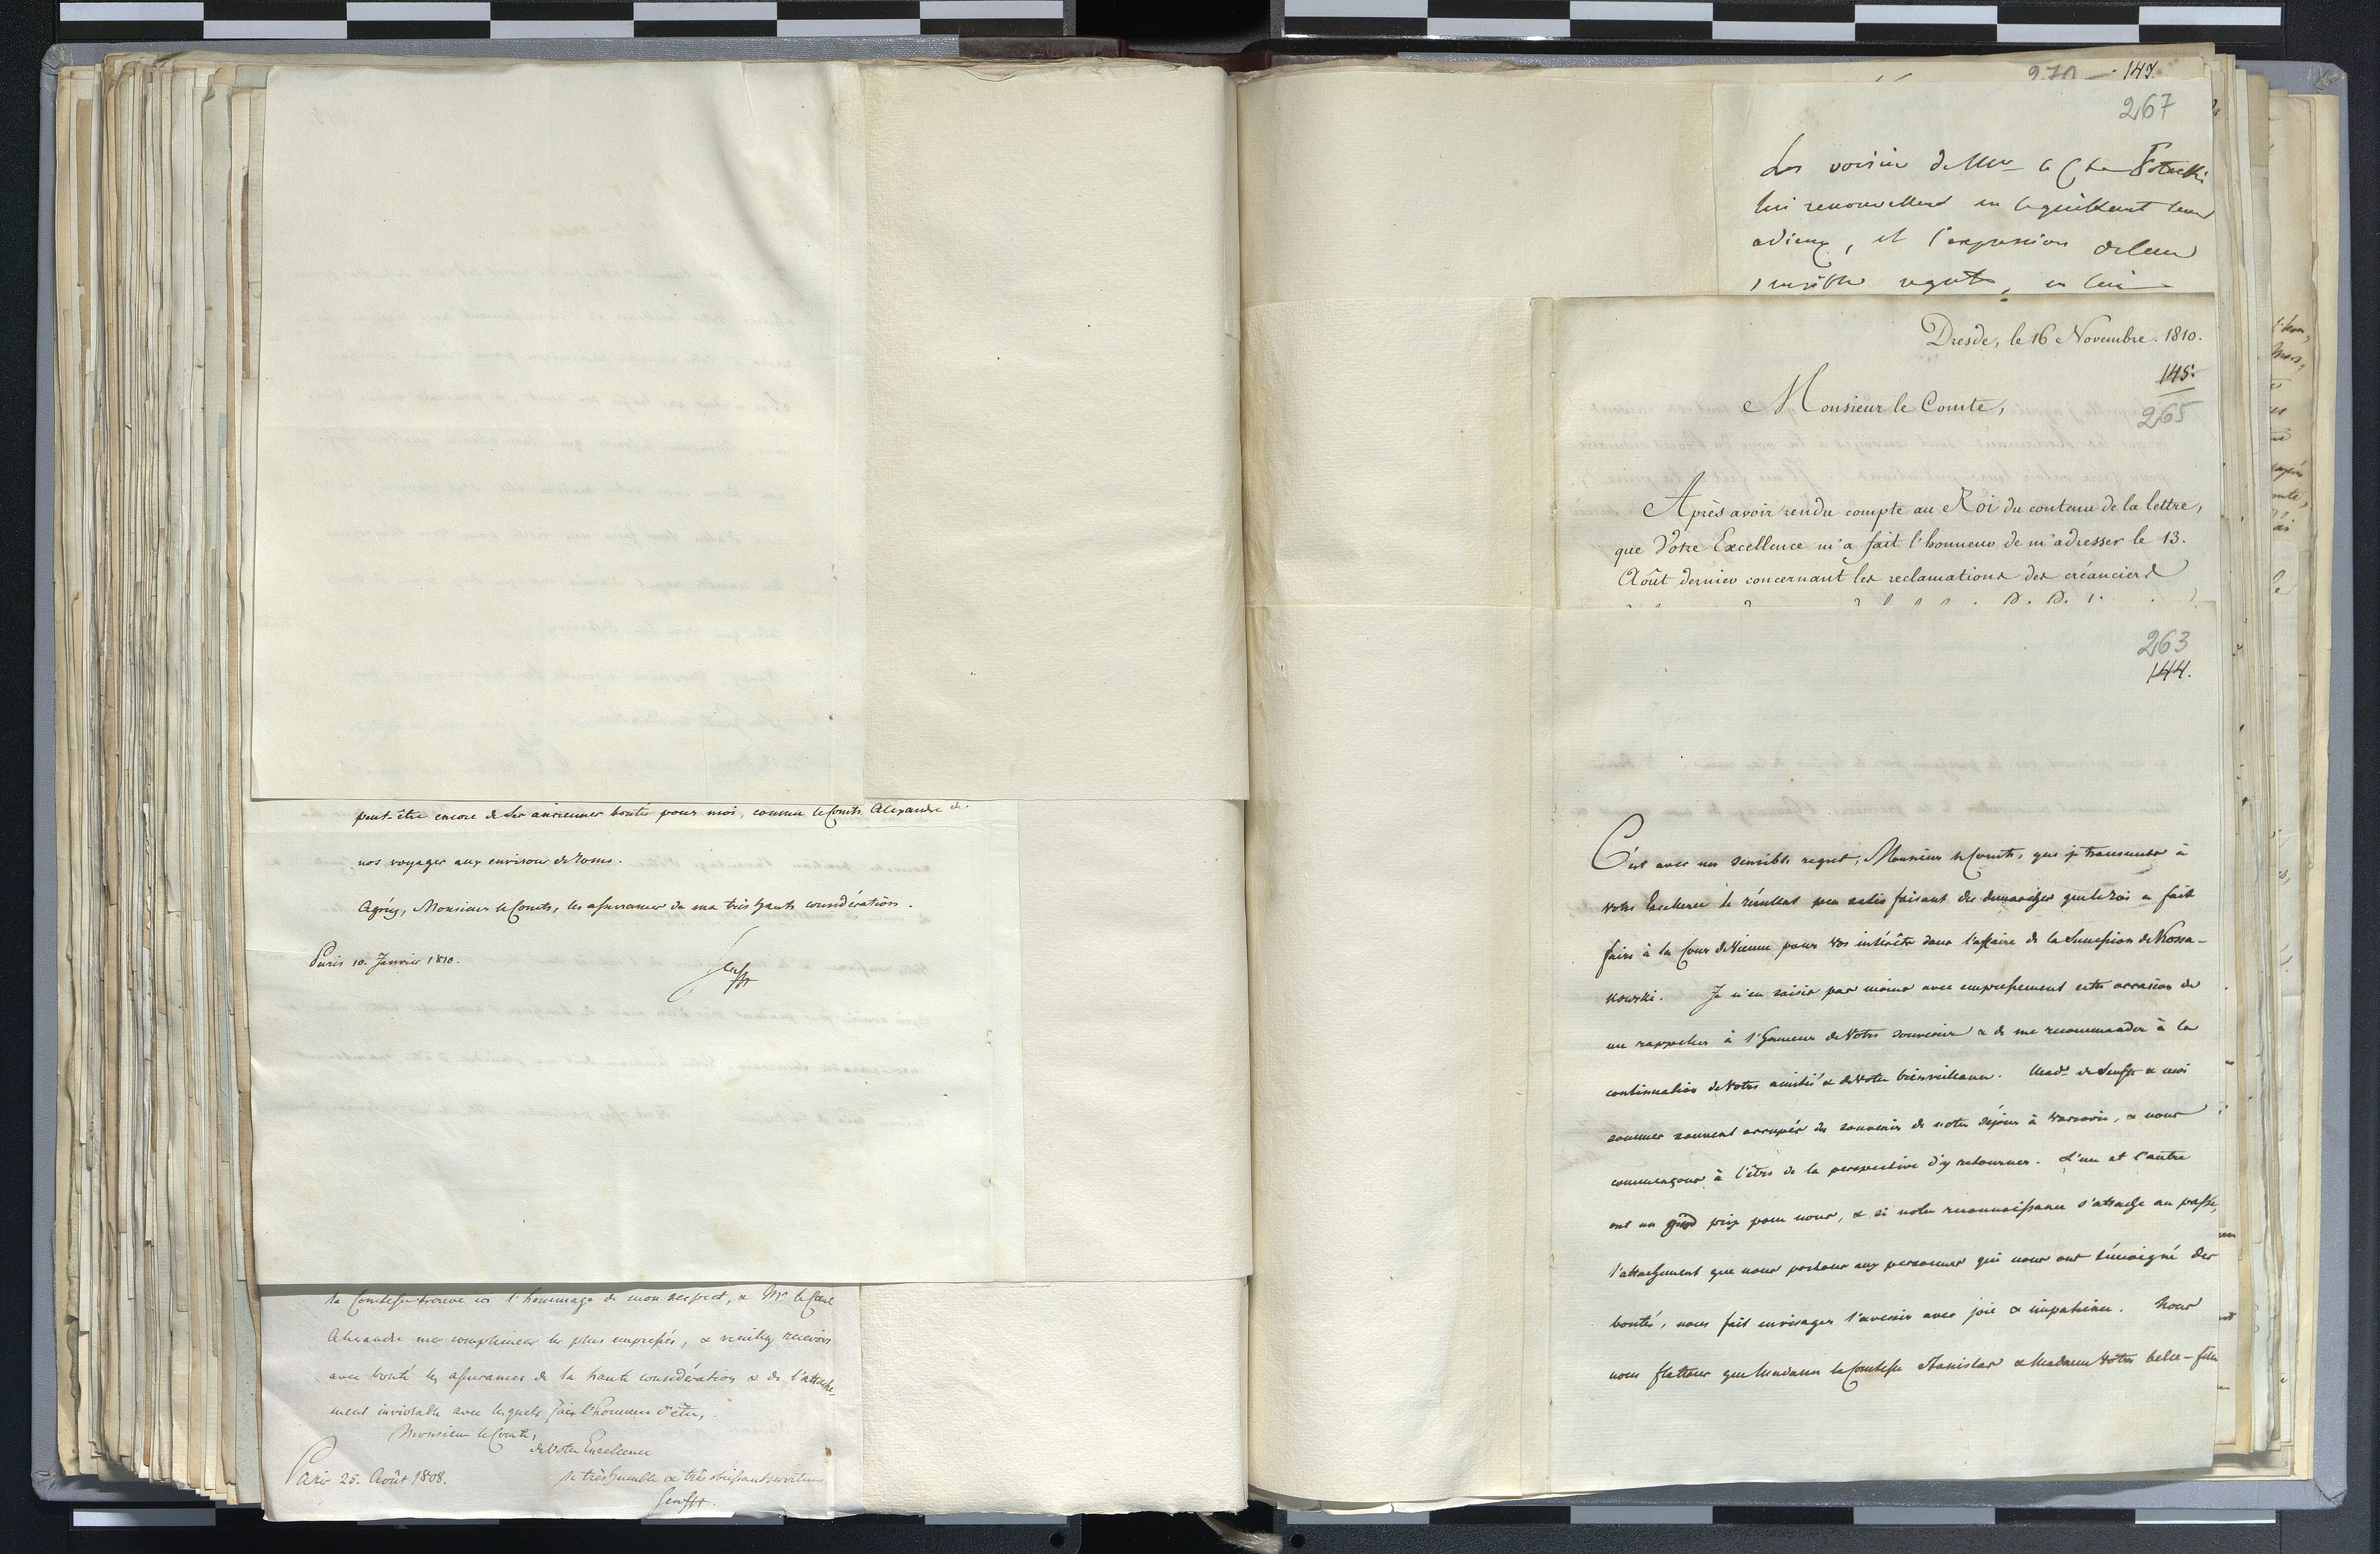 peut-être encore de ses anciennes bontés pour moi, comme le Comte Alexandre de
nos voyages aux environs de Rome.
Agréez, Monsieur le Comte, les assurances de ma très haute considération.
Paris 10. Janvier 1810.
Senfft
la Comtesse trouve ici l'hommage de mon respect, & Mr. le Comte
Alexandre mes complimens les plus empressés, & veuillez recevoir
avec bonté les assurances de la haute considération & de l'attache-
ment inviolable avec lesquels j'ai l'honneur d'être,
Monsieur le Comte,
de Votre Excellence
le très humble & très obéissant serviteur
Paris 25. Août 1808.
Senfft.
147.
267
Les voisins de Mme la Ctesse Potocki
lui renouvellent en la quittant leurs
adieux, et l'expression de leurs
sensibles regrets, en lui
Dresde, le 16 Novembre. 1810.
145.
265
Monsieur le Comte,
Après avoir rendu compte au Roi du contenu de la lettre,
que Votre Excellence m'a fait l'honneur de m'adresser le 13.
Août dernier concernant les reclamations des créanciers
263
144.
C'est avec un sensible regret, Monsieur le Comte, que je transmets à
Votre Excellence le résultat peu satisfaisant des démarches que le roi a fait
faire à la Cour de Vienne pour Vos intérêts dans l'affaire de la Succession de Kossa-
kowski. Je n'en saisis pas moins avec empressement cette occasion de
me rappeller à l'honneur de Votre souvenir & de me recommander à la
continuation de Votre amitié & de Votre bienveillance. Made. de Senfft & moi
sommes souvent occupés du souvenir de notre séjour à Varsovie, & nous
commençons à l'être de la perspective d'y retourner. L'un et l'autre
ont un grand prix pour nous, & si notre reconnaissance s'attache au passé,
l'attachement que nous portons aux personnes qui nous ont témoigné des
bontés, nous fait envisager l'avenir avec joie & impatience. Nous
nous flattons que Madame la Comtesse Stanislas & Madame Votre belle-fille